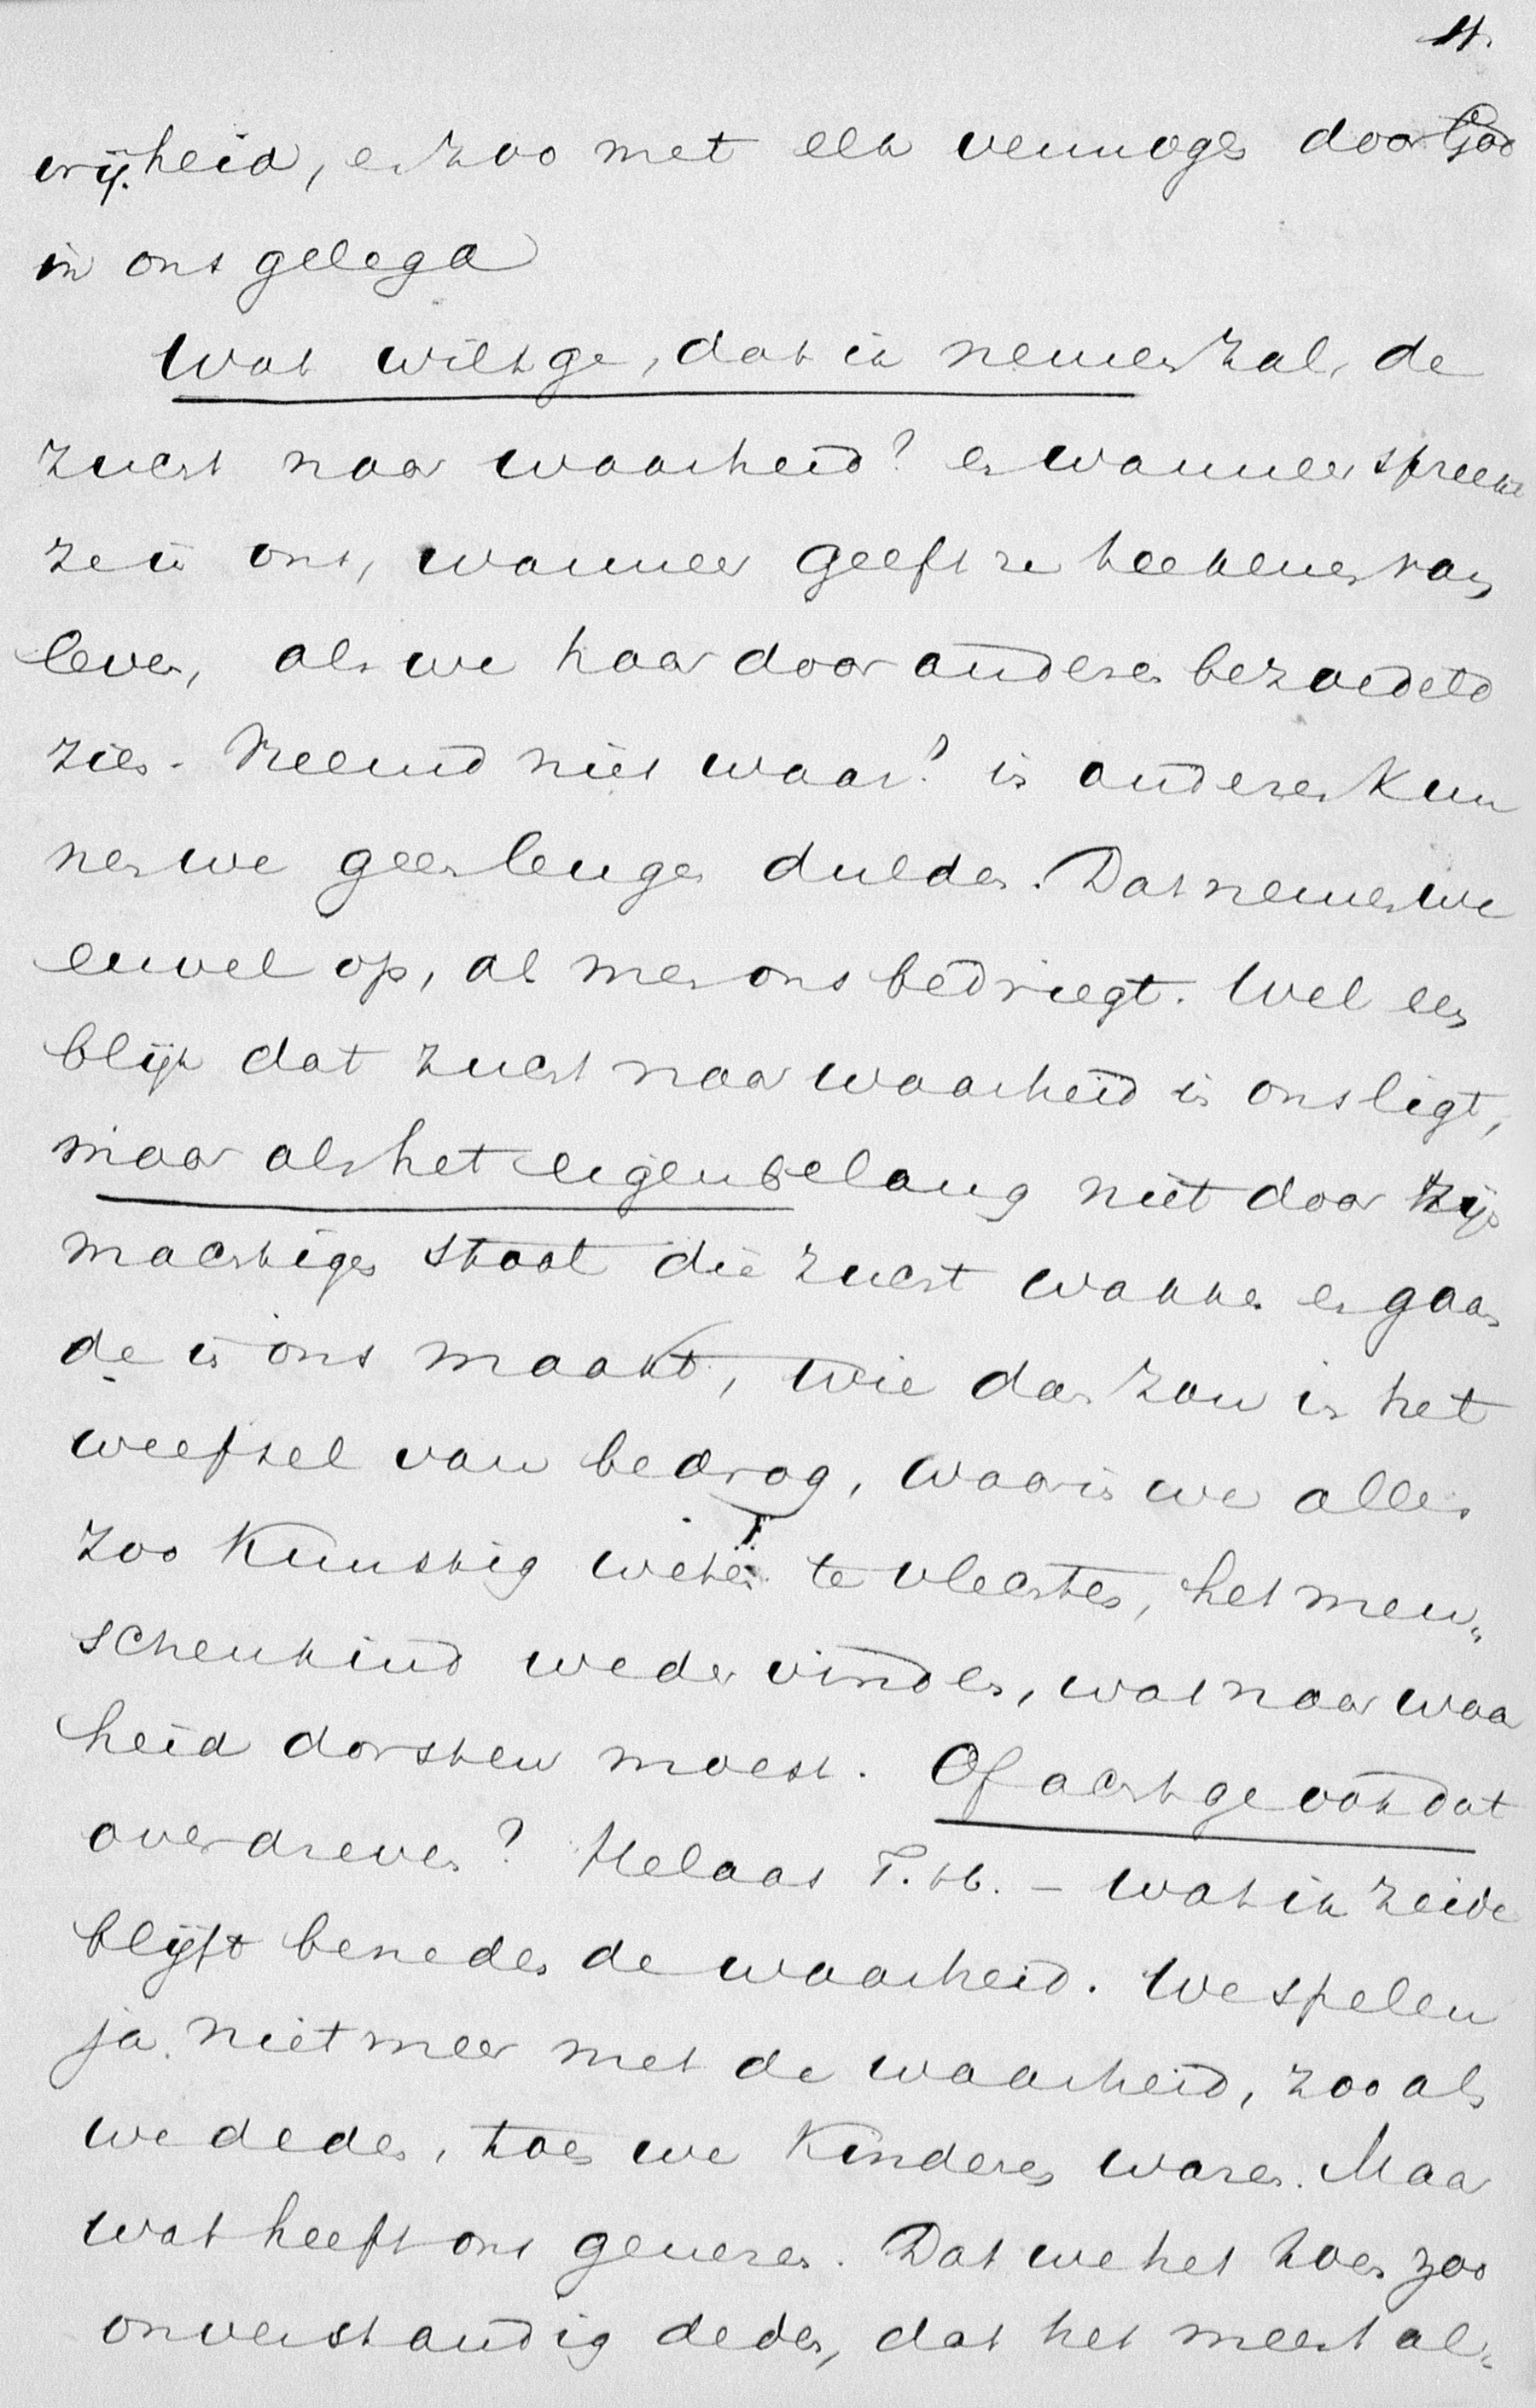 11.
vrijheid, en zoo met elk vermogen door God
in ons gelegd
Wat wilt ge, dat ik nemen zal, de
zucht naar waarheid? en wanneer spreekt
ze in ons, wanneer geeft ze teekenen van
leven, als we haar door anderen bezoedeld
zien. Vreemd niet waar? in anderen kun
nen we geen leugen dulden. Dat nemen we
euvel op, als men ons bedriegt. Wel een
blijk dat zucht naar waarheid in ons ligt,
maar als het eigenbelang niet door zijn
machtigen staat die zucht wakker en gaan
de in ons maakt, wie dan zou in het
weefsel van bedrog, waarin we allen
zoo kunstig weten te vlechten, het men„
schenkind weder vinden, wat naar waar
heid dorsten moest. Of acht ge ook dat
overdreven? Helaas T. H. – wat ik zeide
blijft beneden de waarheid. We spelen
ja niet meer met de waarheid, zooals
we deden, toen we kinderen waren. Maar
wat heeft ons genezen. Dat we het toen zoo
onverstandig deden, dat het meest al„